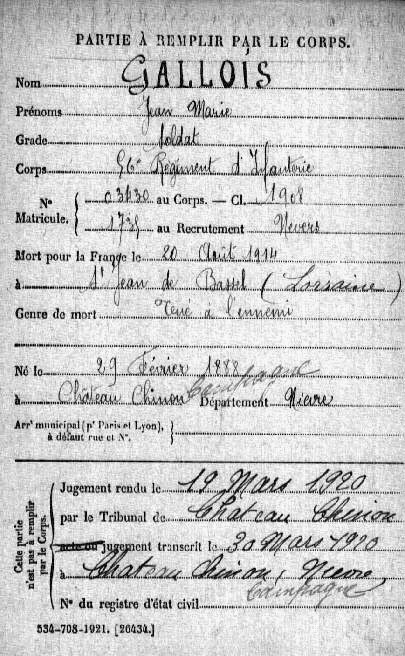 PARTIE À REMPLIR PAR LE CORPS.
Nom GALLOIS
Prénoms Jean Marie
Grade Soldat
Corps 56e Régiment d'Infanterie
N° Matricule. 03430 au Corps. — Cl. 1908
1735 au Recrutement Nevers
Mort pour la France le 20 Août 1914
à St Jean de Bassel (Lorraine)
Genre de mort Tué à l'ennemi
Né le 29 Février 1888
à Château Chinon Campagne Département Nièvre
Arrt municipal (pr Paris et Lyon), à défaut rue et N°.
Cette partie n'est pas à remplir par le Corps.
Jugement rendu le 19 Mars 1920
par le Tribunal de Chateau Chinon
acte ou jugement transcrit le 30 Mars 1920
à Chateau Chinon, Nièvre
Campagne
N° du registre d'état civil
534-708-1921. [26434.]